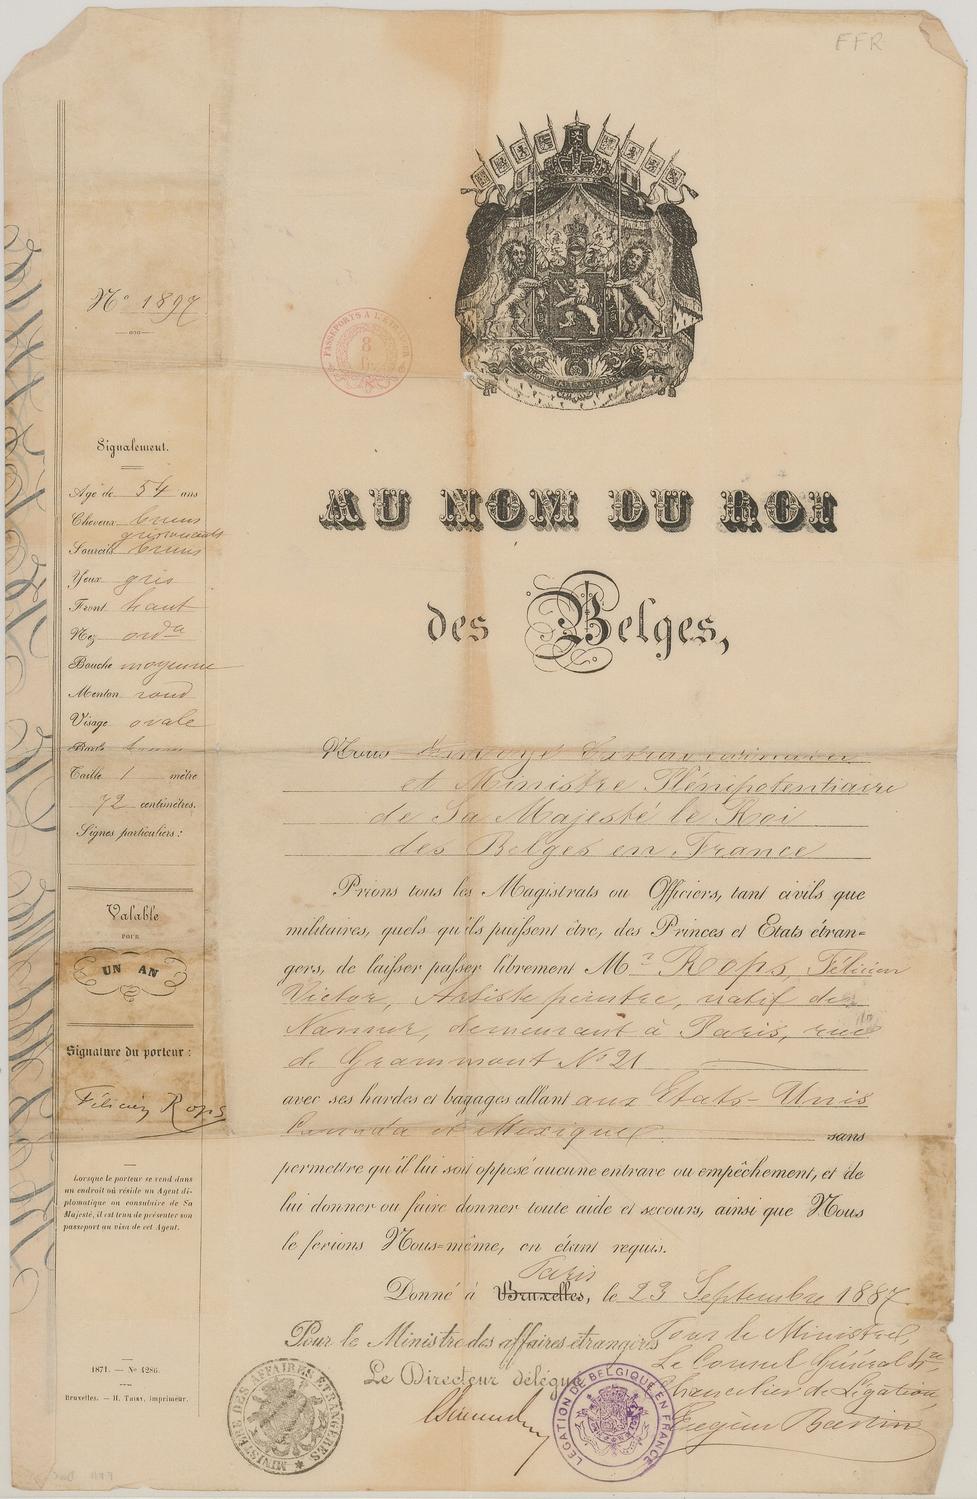 FFR
Nº 1897
Signalement.
Agé de 54 ans
Cheveux bruns
grisonnants
Sourcils bruns
Yeux gris
Front haut
Nez ordre
Bouche moyenne
Menton rond
Visage ovale
Barbe brune
Taille 1 mètre
72 centimètres.
Signes particuliers :
Valable
POUR
UN AN
Signature du porteur :
Félicien Rops
Lorsque le porteur se rend dans
un endroit où réside un Agent di-
plomatique ou consulaire de Sa
Majesté, il est tenu de présenter son
passeport au visa de cet Agent.
1871. — No 4286.
Bruxelles. — H. Thiry, imprimeur.
PASSEPORTS A L'ÉTRANGER
8
AU NOM DU ROI
des Belges,
Nous Envoyé Extraordinaire
et Ministre Plénipotentiaire
de Sa Majesté le Roi
des Belges en France
Prions tous les Magistrats ou Officiers, tant civils que
militaires, quels qu'ils puissent être, des Princes et Etats étran=
gers, de laisser passer librement Mr Rops, Félicien
Victor, Artiste peintre, natif de
Namur, demeurant à Paris, rue
de Grammont No 21
avec ses hardes et bagages allant aux Etats-Unis
Canada et Mexique sans
permettre qu'il lui soit opposé aucune entrave ou empêchement, et de
lui donner ou faire donner toute aide et secours, ainsi que Nous
le ferions Nous=même, en étant requis.
Paris
Donné à Bruxelles, le 23 Septembre 1887.
Pour le Ministre des affaires étrangères
Le Directeur délégué
Pour le Ministre,
Le Consul Général hre,
Chancelier de Légation,
Eugène Bastin
MINISTÈRE DES AFFAIRES ÉTRANGÈRES
LÉGATION DE BELGIQUE EN FRANCE